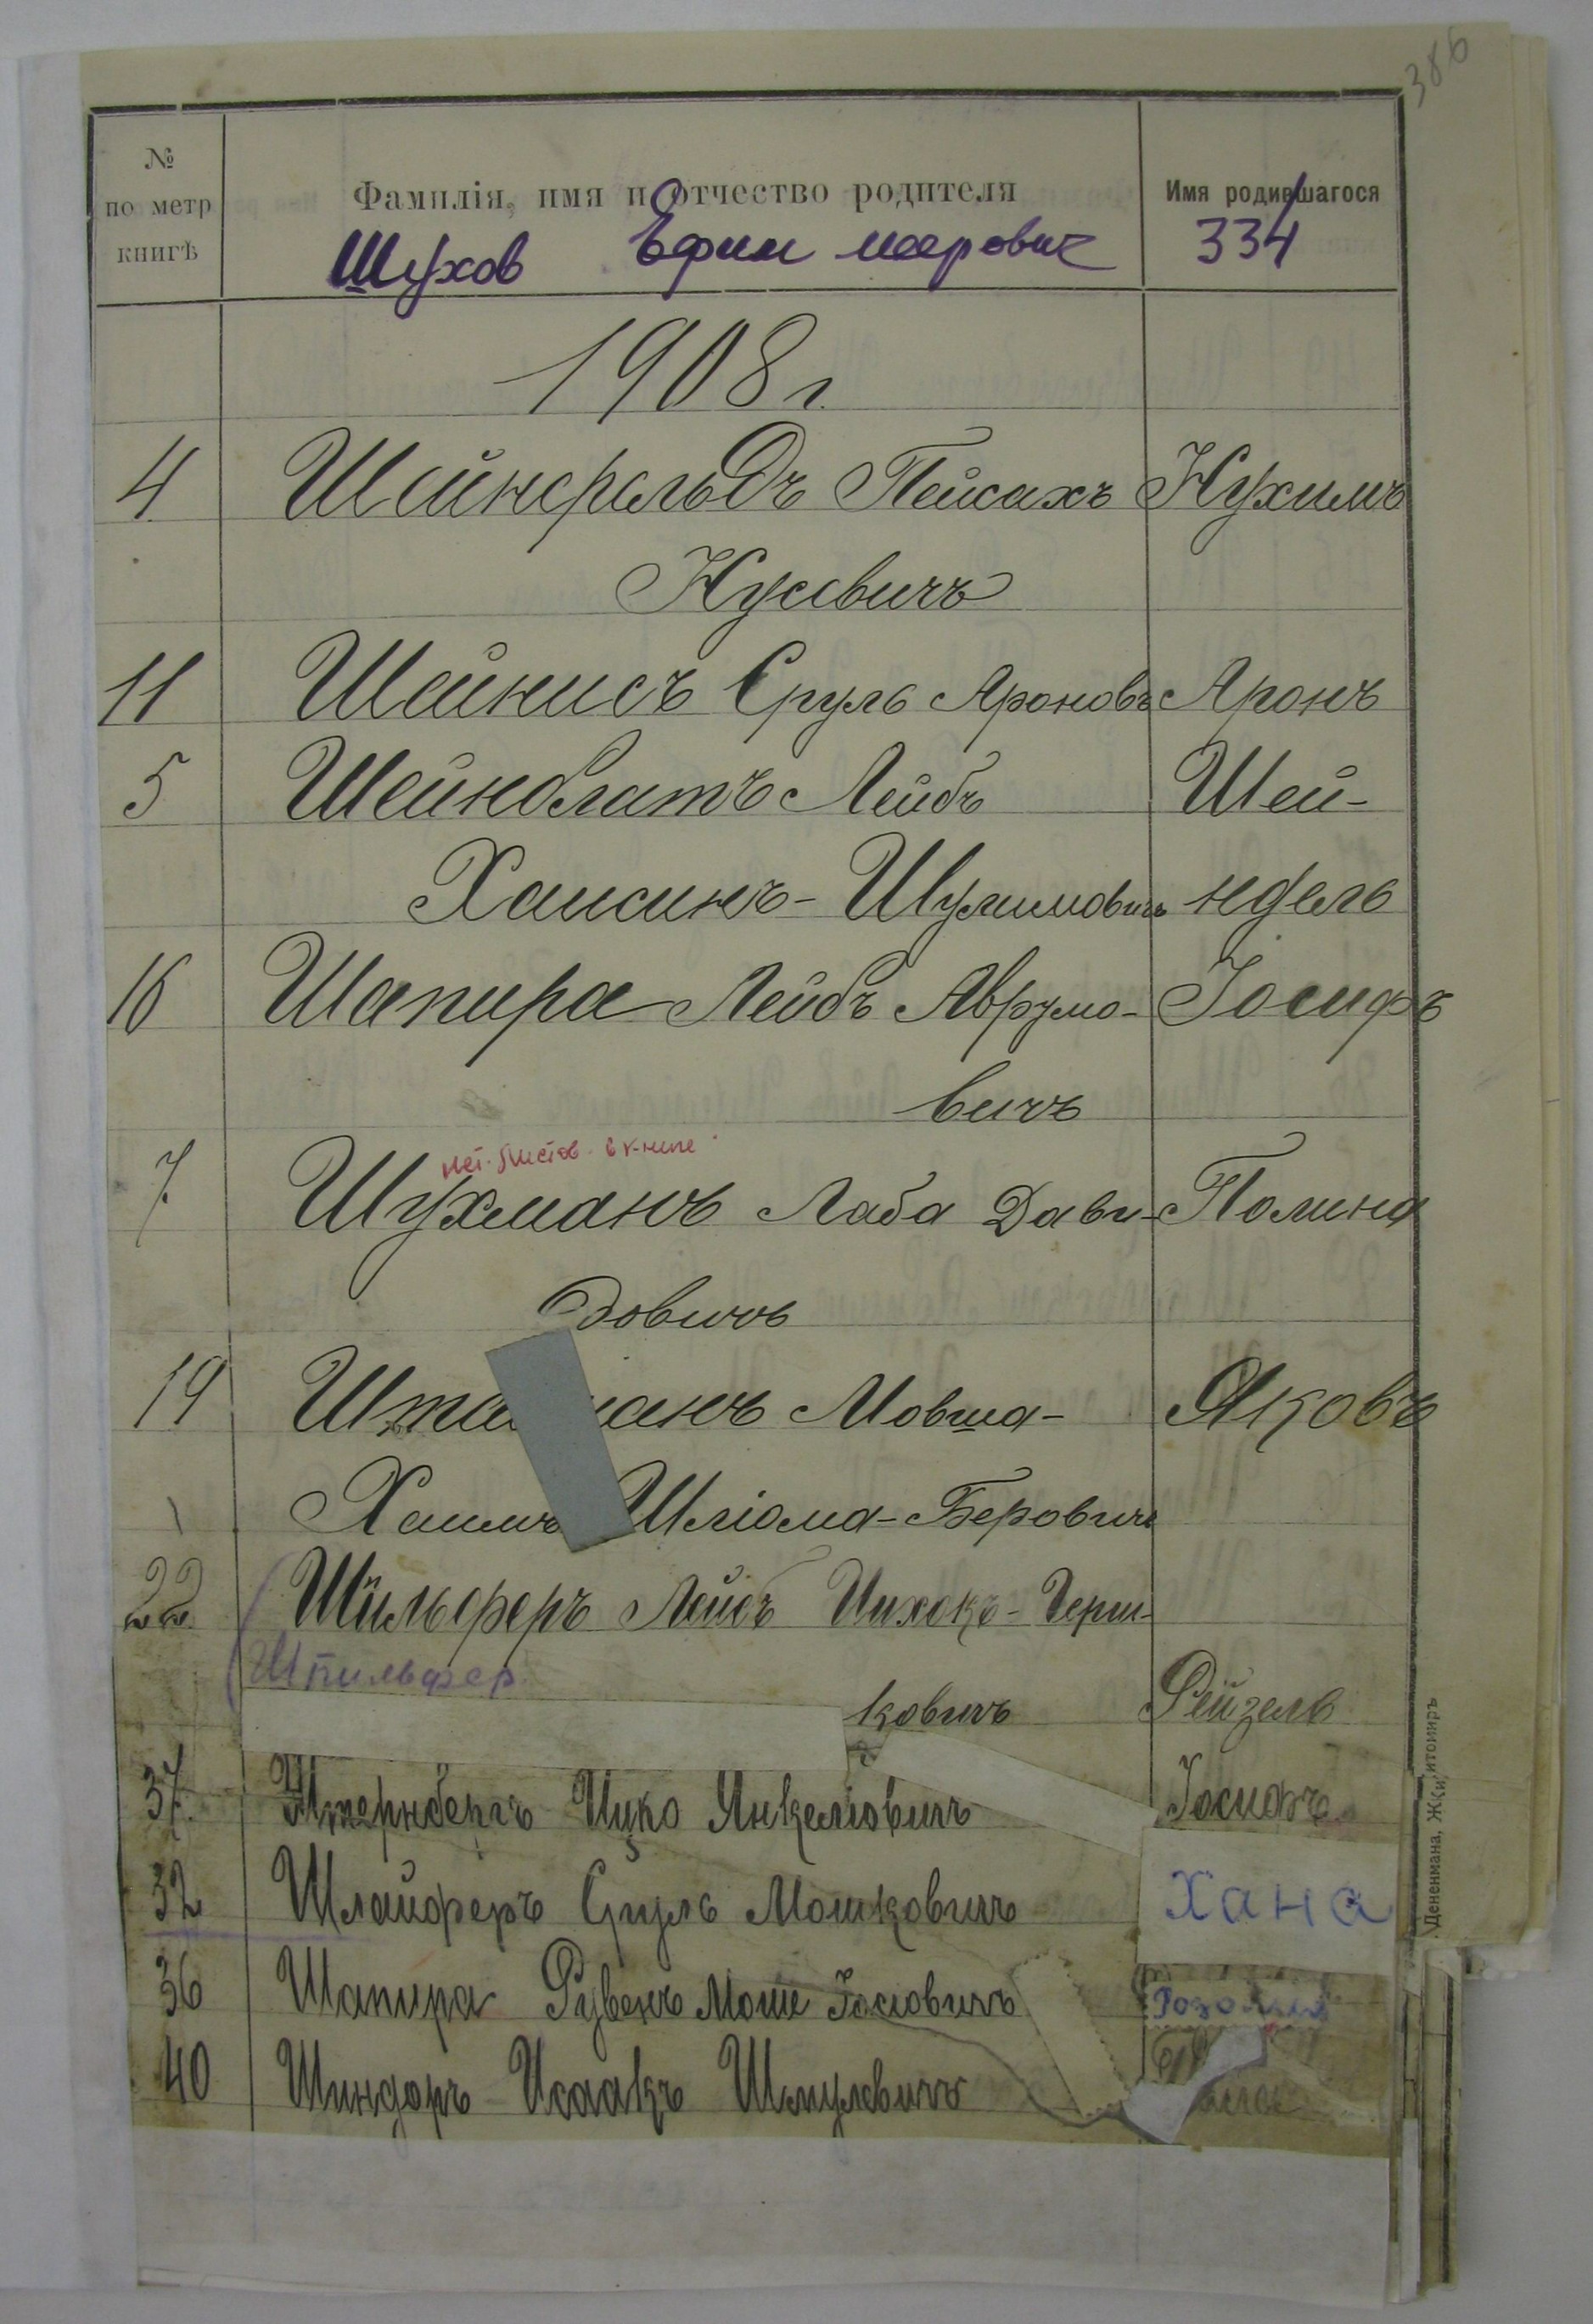 386
№ по метр книгѣ
Фамилія, имя и отчество родителя
Имя родившагося
Шухов Ефим меерович 334
1908 г.
4 Шейнфельдъ Пейсахъ Нухимъ
Нусевичъ
11 Шейнисъ Сруль Ароновъ Аронъ
5 Шейнблатъ Лейбъ Шей-
Шулимовичъ ндель
16 Шапира Лейбъ Аврумо- Іосифъ
вичъ
нет листов в книге
7 Шухманъ Лаба Дави- Полина
довичъ
19 Шта манъ Мовша- Яковъ
Хаимъ Шліома-Беровичъ
22 Шильферъ Лейбъ Ицхокъ-Герш-
Шпильфер
ковичъ Рейзель
37. Штернбергъ Ицко Янкеліовичъ Іосифъ
32 Шлайферъ Сруль Мошковичъ Хана
36 Шапира Рувенъ Моше Іосіовичъ Розалия
40 Шиндеръ Исаакъ Шмулевичъ
Житомиръ